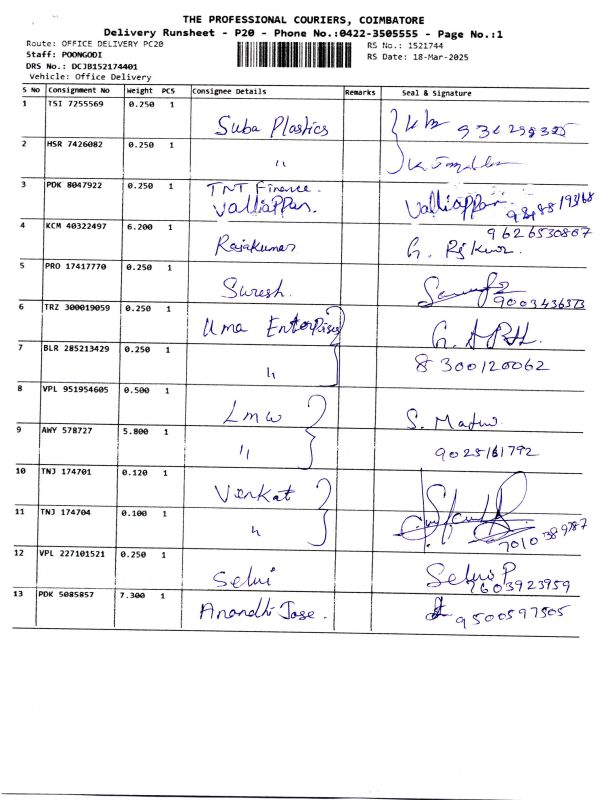 THE PROFESSIONAL COURIERS, COIMBATORE
Delivery Runsheet - P20 - Phone No.:0422-3505555 - Page No.:1
Route: OFFICE DELIVERY PC20
RS No.: 1521744
Staff: POONGODI
RS Date: 18-Mar-2025
DRS No.: DCJB152174401
Vehicle: Office Delivery
S No Consignment No Weight PCS Consignee Details Remarks Seal & Signature
1 TSI 7255569 0.250 1
Suba Plastics
2 HSR 7426082 0.250 1
"
3 PDK 8047922 0.250 1 TNT Finance.
Valliappan. Valliappan
4 KCM 40322497 6.200 1 9626530867
Rajakumar G. Rjkur.
5 PRO 17417770 0.250 1
Suresh. 9003436573
6 TRZ 300019059 0.250 1
Uma Enterprises
7 BLR 285213429 0.250 1 8300120062
"
8 VPL 951954605 0.500 1
Lmw S.
9 AWY 578727 5.800 1
" 9025161792
10 TNJ 174701 0.120 1
Venkat
11 TNJ 174704 0.100 1
" 7010389787
12 VPL 227101521 0.250 1
Selvi Selvi P
7603923959
13 PDK 5085857 7.300 1
Anandhi Jose. 9500597505